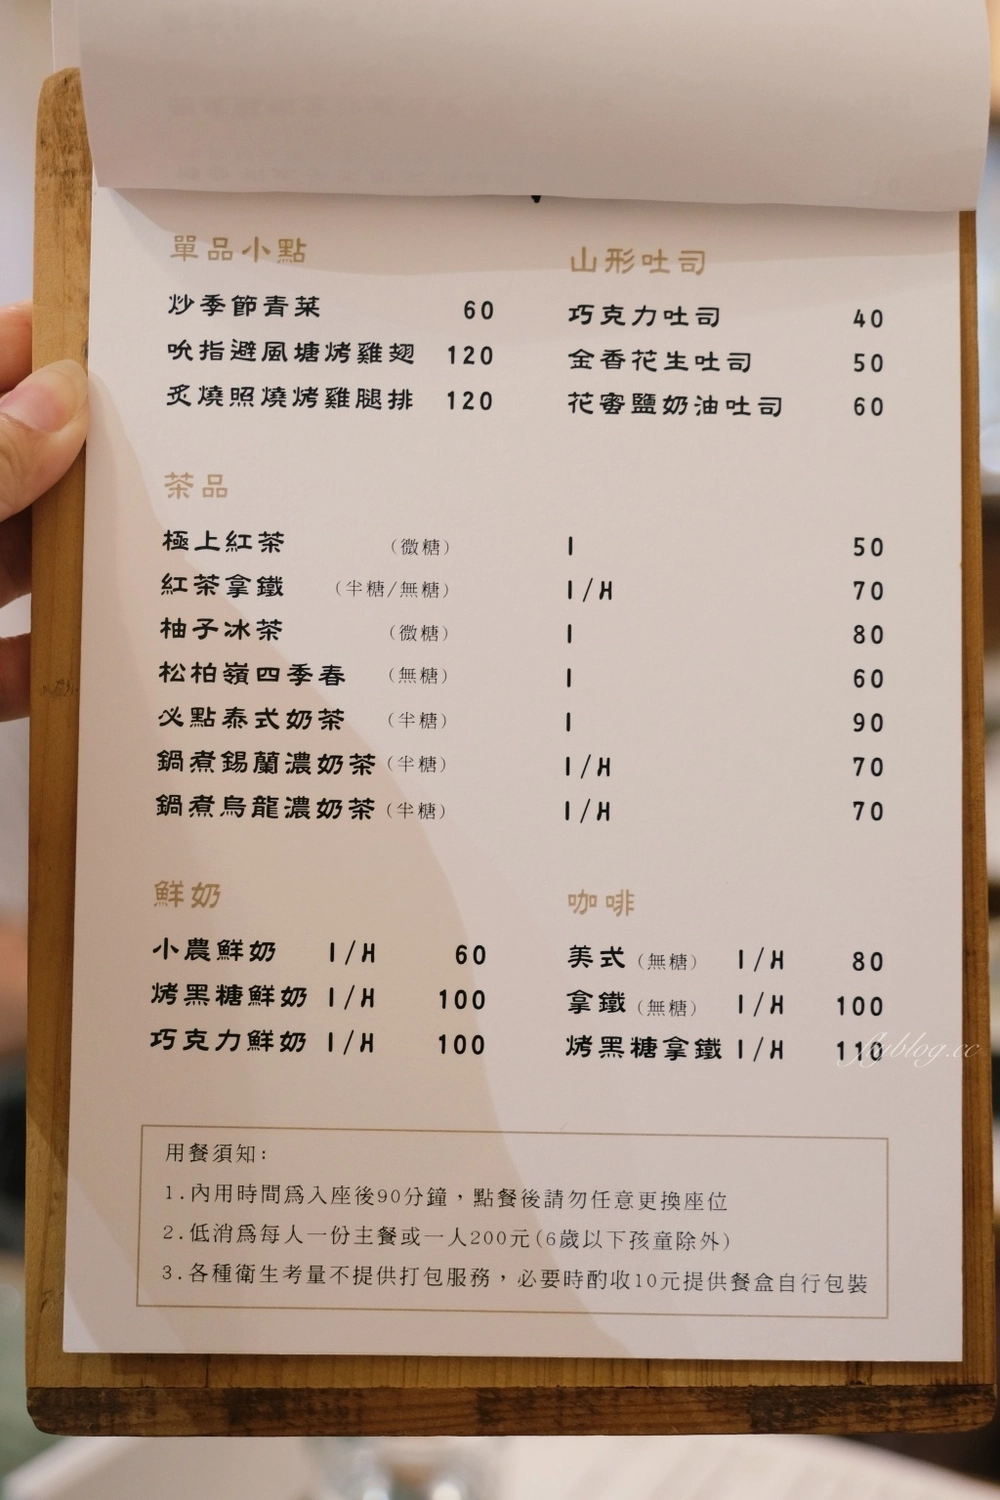 單品小點
炒季節青菜 60
吮指避風塘烤雞翅 120
炙燒照燒烤雞腿排 120
山形吐司
巧克力吐司 40
金香花生吐司 50
花蜜鹽奶油吐司 60
茶品
極上紅茶 (微糖) I 50
紅茶拿鐵 (半糖/無糖) I/H 70
柚子冰茶 (微糖) I 80
松柏嶺四季春 (無糖) I 60
必點泰式奶茶 (半糖) I 90
鍋煮錫蘭濃奶茶 (半糖) I/H 70
鍋煮烏龍濃奶茶 (半糖) I/H 70
鮮奶
小農鮮奶 I/H 60
烤黑糖鮮奶 I/H 100
巧克力鮮奶 I/H 100
咖啡
美式 (無糖) I/H 80
拿鐵 (無糖) I/H 100
烤黑糖拿鐵 I/H 110
flyblog.cc
用餐須知:
1.內用時間爲入座後90分鐘，點餐後請勿任意更換座位
2.低消爲每人一份主餐或一人200元(6歲以下孩童除外)
3.各種衛生考量不提供打包服務，必要時酌收10元提供餐盒自行包裝